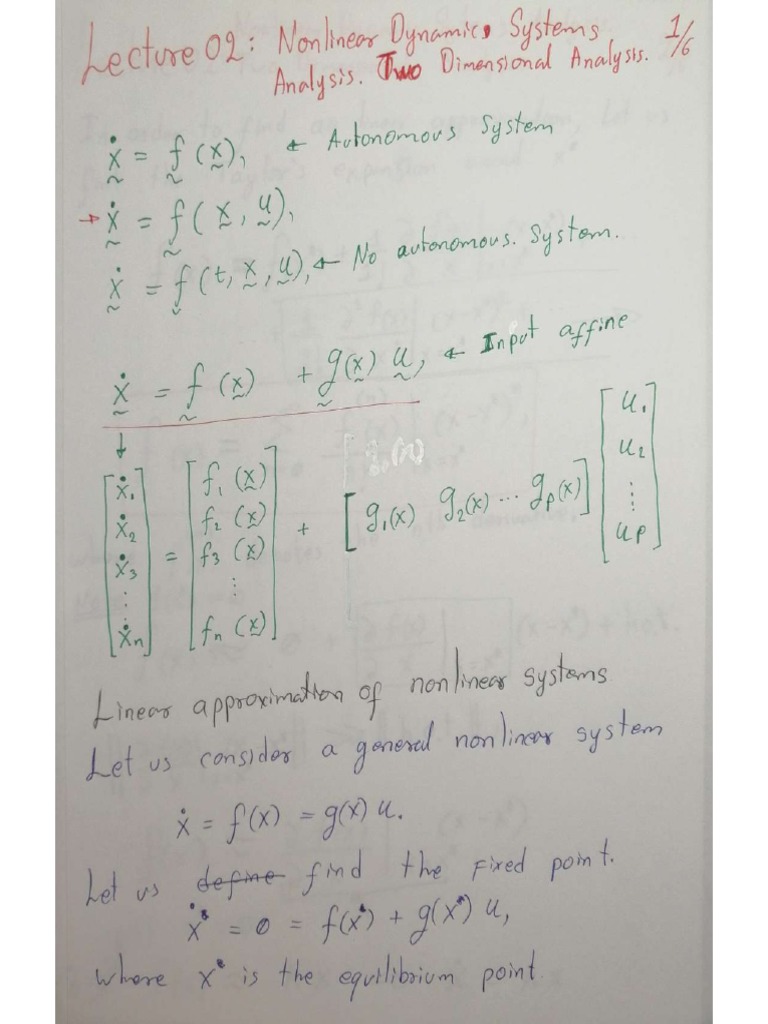 Lecture 02: Nonlinear Dynamics Systems 1/6
Analysis. Two Dimensional Analysis.
ẋ = f(x), ← Autonomous System
→ ẋ = f(x, u),
ẋ = f(t, x, u), ← No autonomous. System.
ẋ = f(x) + g(x) u, ← Input affine
↓
[ẋ1 ẋ2 ẋ3 ⋮ ẋn] = [f1(x) f2(x) f3(x) ⋮ fn(x)] + [g1(x) g2(x) ... gp(x)] [u1 u2 ⋮ up]
Linear approximation of nonlinear systems
Let us consider a general nonlinear system
ẋ = f(x) = g(x) u.
Let us define find the fixed point.
ẋ* = 0 = f(x*) + g(x*) u,
where x* is the equilibrium point.